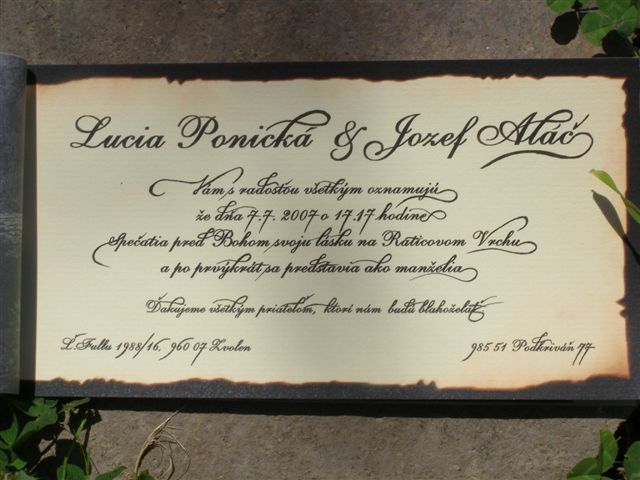 Lucia Ponická & Jozef Aláč
Vám s radosťou všetkým oznamujú
že dňa 7.7. 2007 o 17.17 hodine
Spečatia pred Bohom svoju lásku na Raticovom Vrchu
a po prvýkrát sa predstavia ako manželia
Ďakujeme všetkým priateľom, ktorí nám budú blahoželať
Ľ. Fullu 1988/16, 960 07 Zvolen
985 51 Podkriváň 77